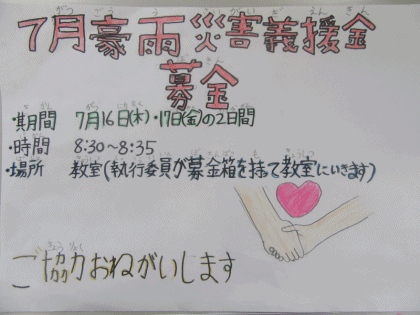 7月豪雨災害義援金
募金
・期間 7月16日(木)・17日(金)の2日間
・時間 8:30~8:35
・場所 教室(執行委員が募金箱を持て教室にいきます)
ご協力おねがいします